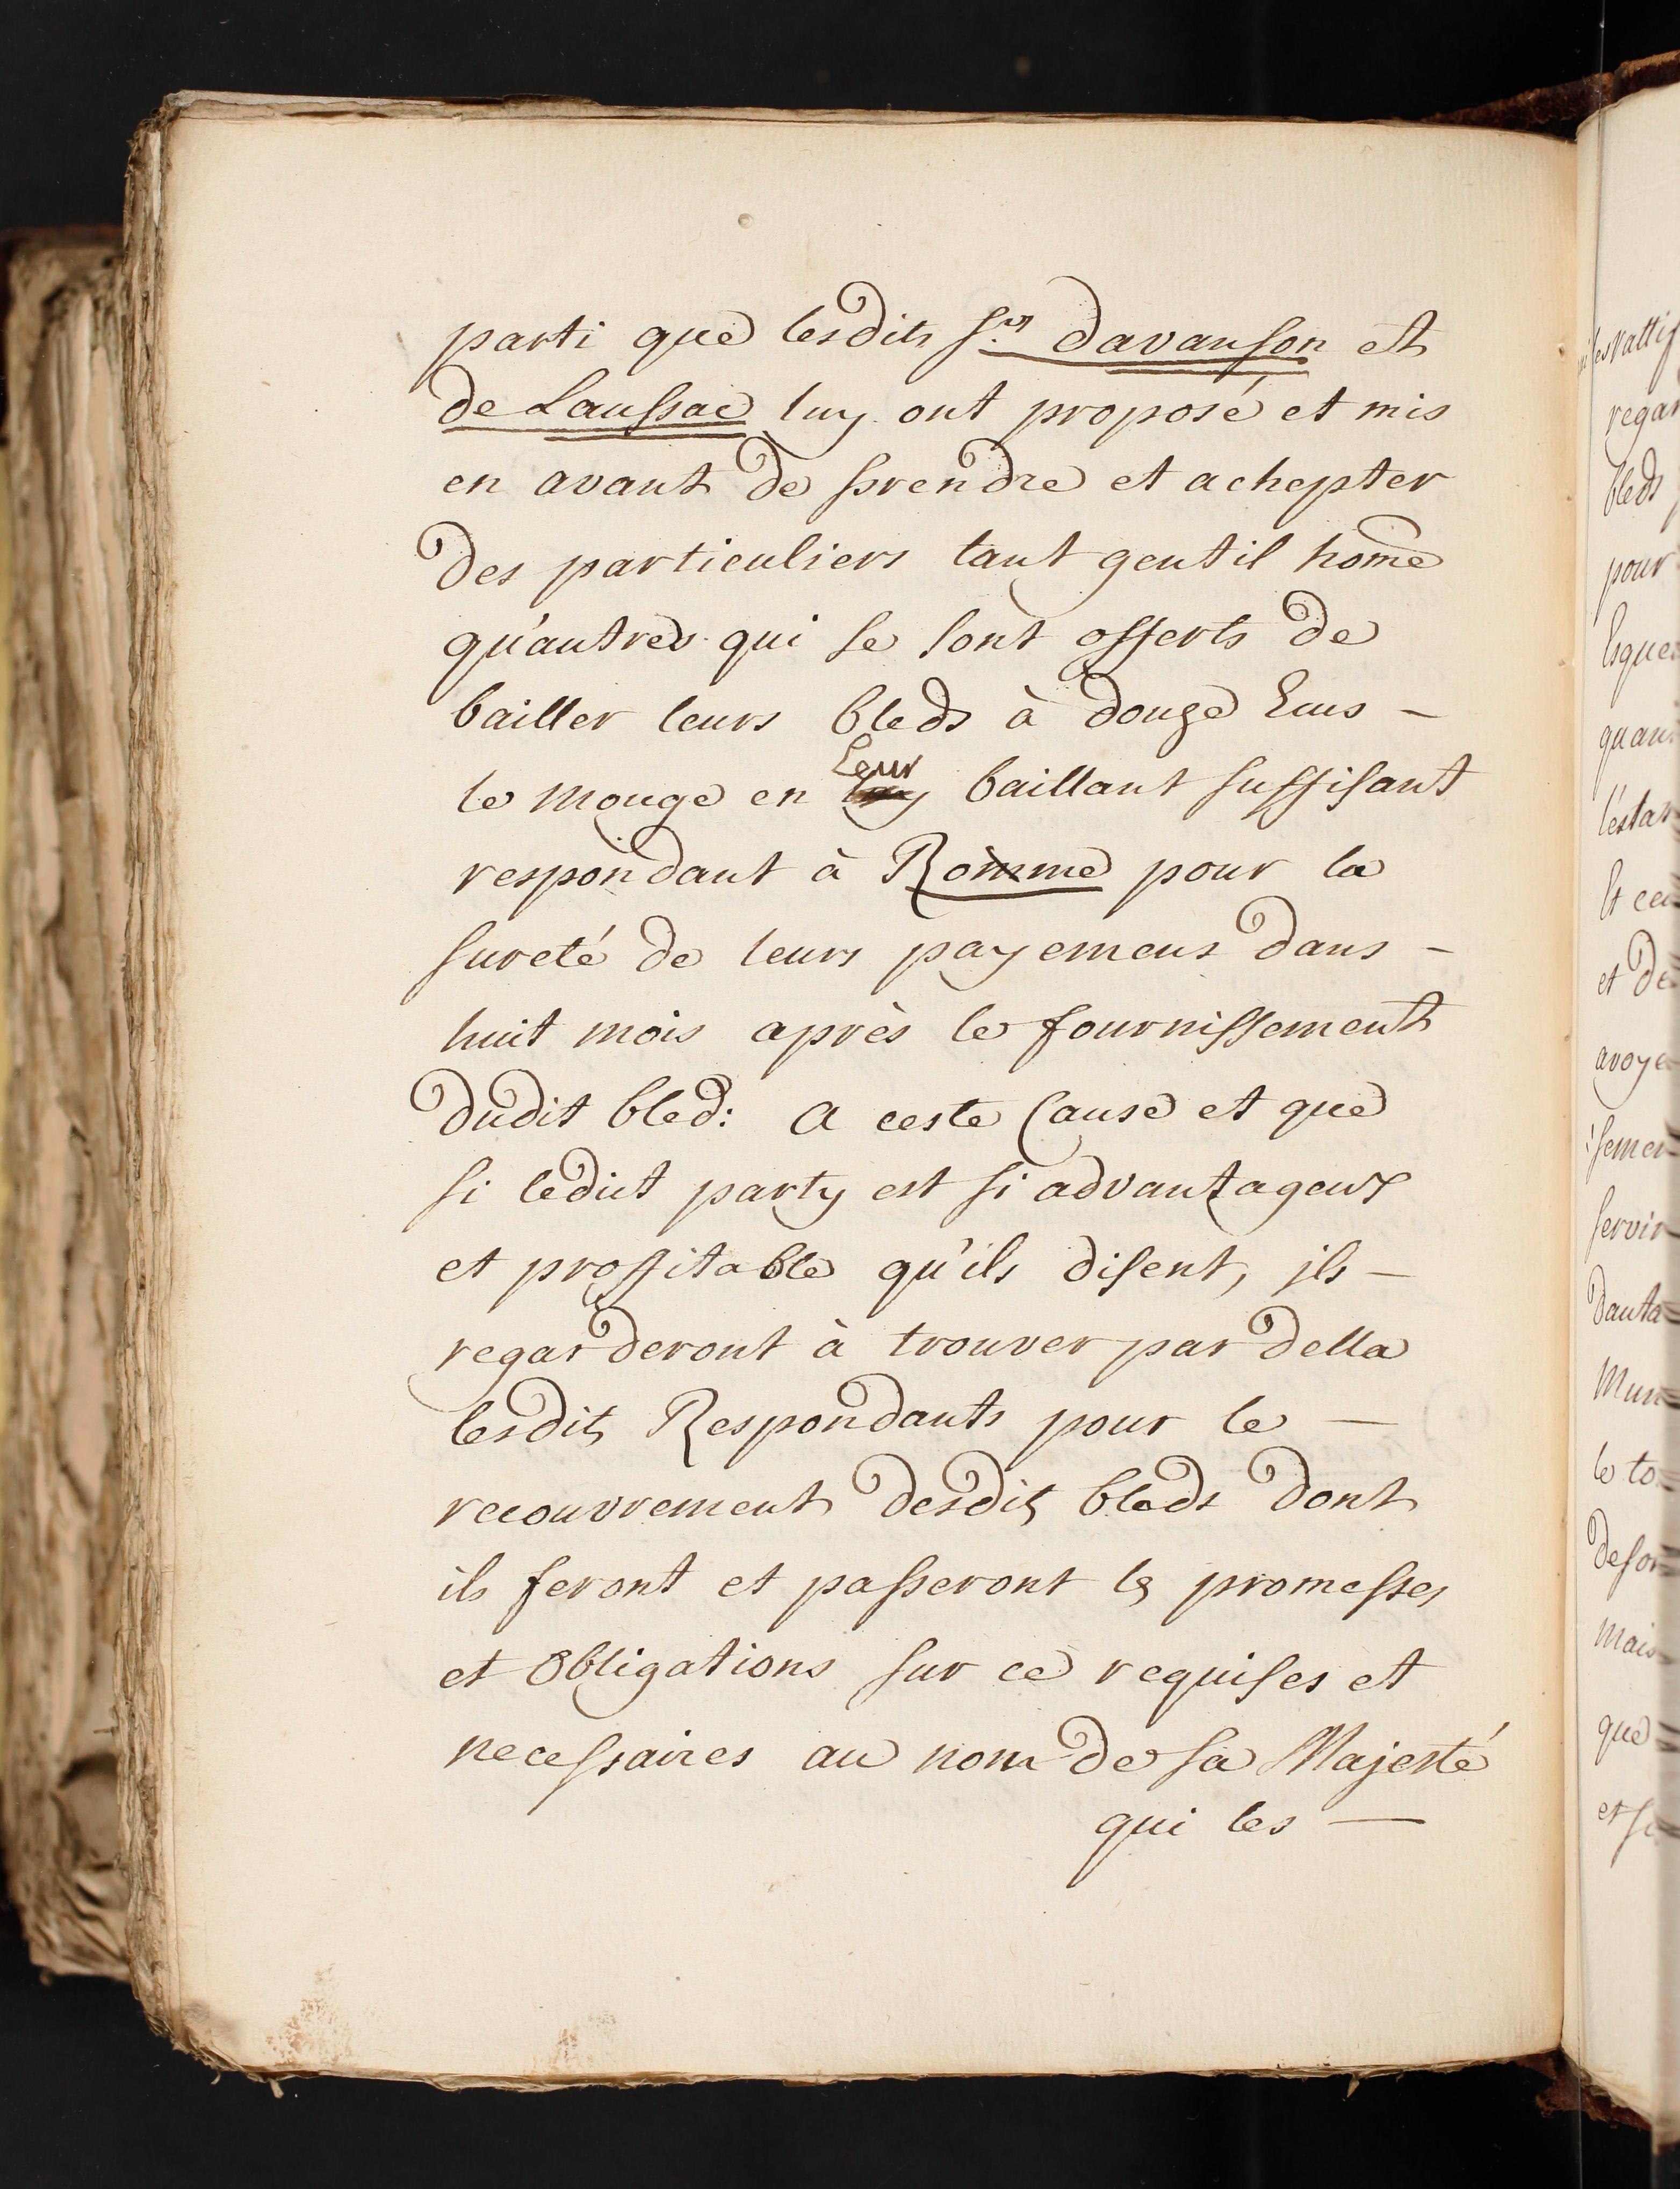 parti que lesdits S.rs davanson et
de Laussac luy ont proposé et mis
en avant de prendre et achepter
des particuliers tant gentil home
qu'autres qui se sont offerts de
bailler leurs bleds à douze Ecus -
le mouge en Leur baillant suffisant
respondant à Romme pour la
sureté de leurs payemens dans -
huit mois après le fournissement
dudit bled: a ceste Cause et que
si ledict party est si advantageux
et proffitable qu'ils disent, ils -
regarderont à trouver par della
lesdits Respondants pour le -
recouvrement desdits bleds dont
ils feront et passeront les promesses
et Obligations sur ce requises et
necessaires au nom de sa Majesté
qui les -
regar
bleds
pour
et de
Mais
que